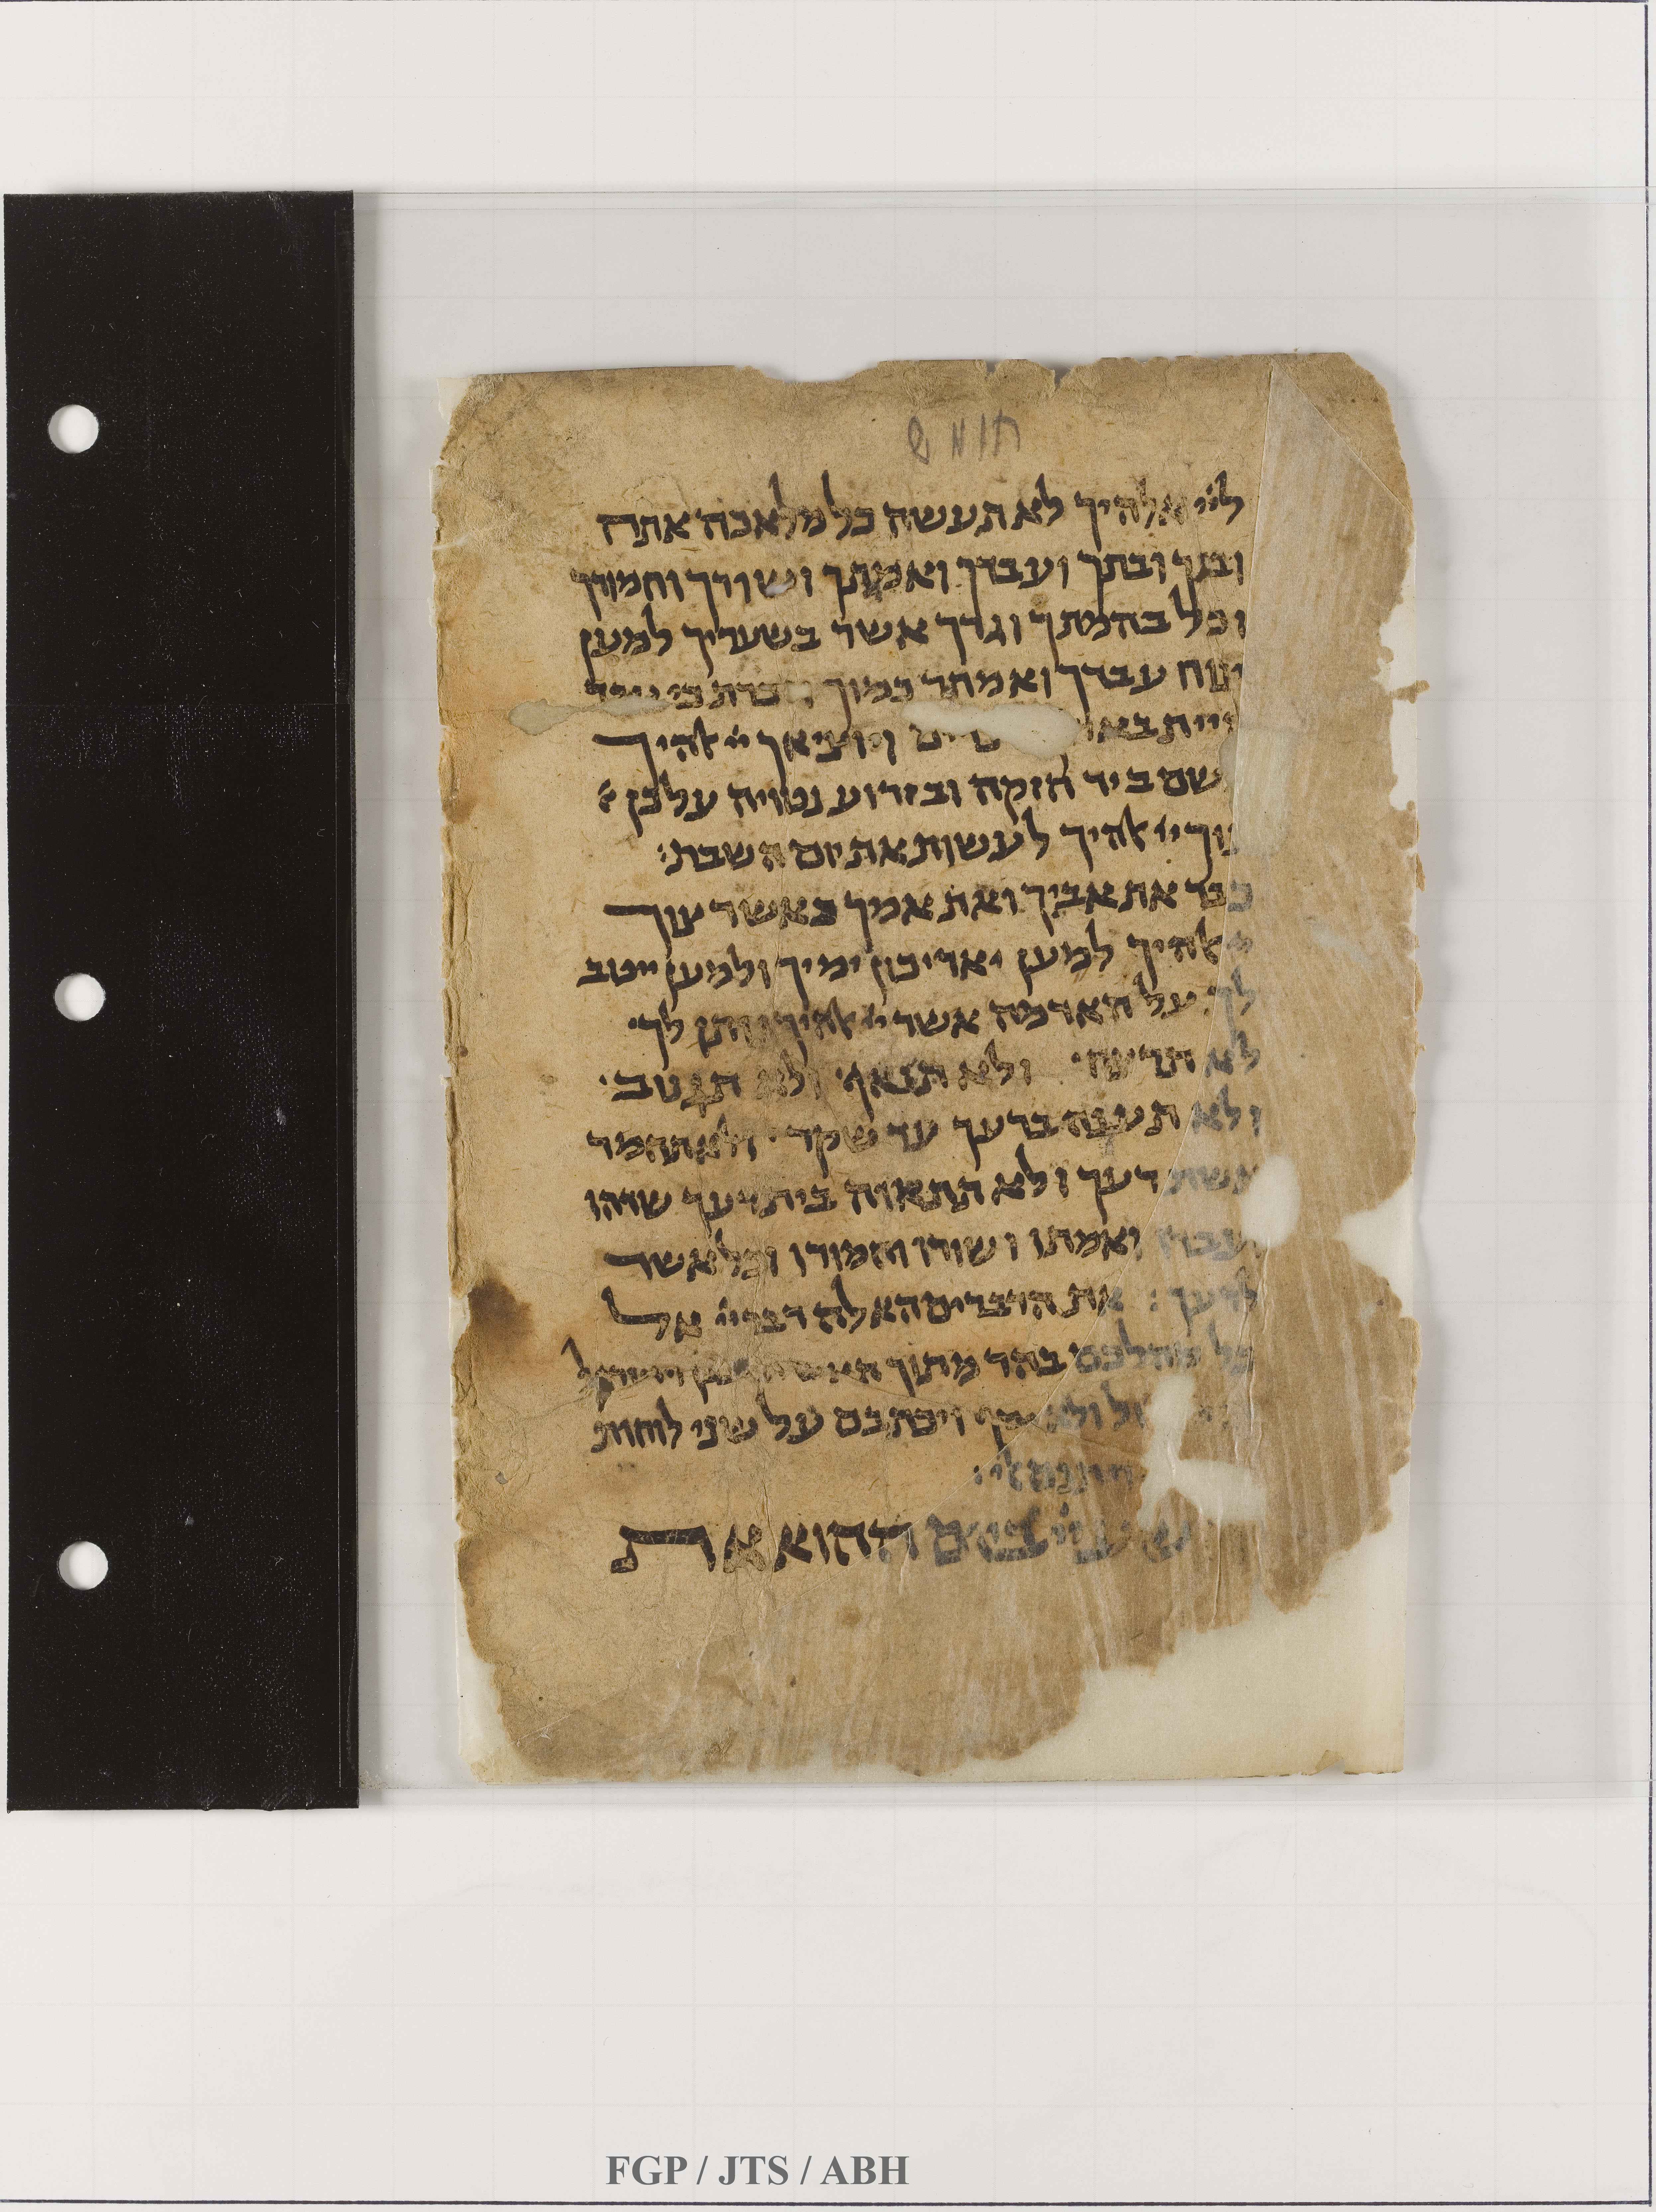 חומש
לײ אלהיך לא תעשה כל מלאכה אתה
ובנך ובתך ועבדך ואמתך ושורך וחמורך
וכל בהמתך וגרך אשר בשעריך למען
ינוח עבדך ואמתך כמוך וזכרת כי
היית ויוציאך ײ אהיך
משם ביד חזקה ובזרוע נטויה על כן
צוך ײ אהיך לעשות את יום השבת
כבד את אביך ואת אמך כאשר צוך
ײ אהיך למען יאריכון ימיך ולמען ייטב
לך על האדמה אשר ײ אהיך נותן לך
לא תרצח ולא תנאף ולא תגנוב
ולא תענה ברעך עד שקר ולא תחמד
אשת רעך ולא תתאוה בית רעך שדהו
ועבדו ואמתו ושורו וחמורו וכל אשר
לרעך את הדברים האלה דבר ײ אל
כל קהלכם בהר מתוך האש
ולא יסף ויכתבם על שני לוחות

ההוא את
FGP / JTS / ABH